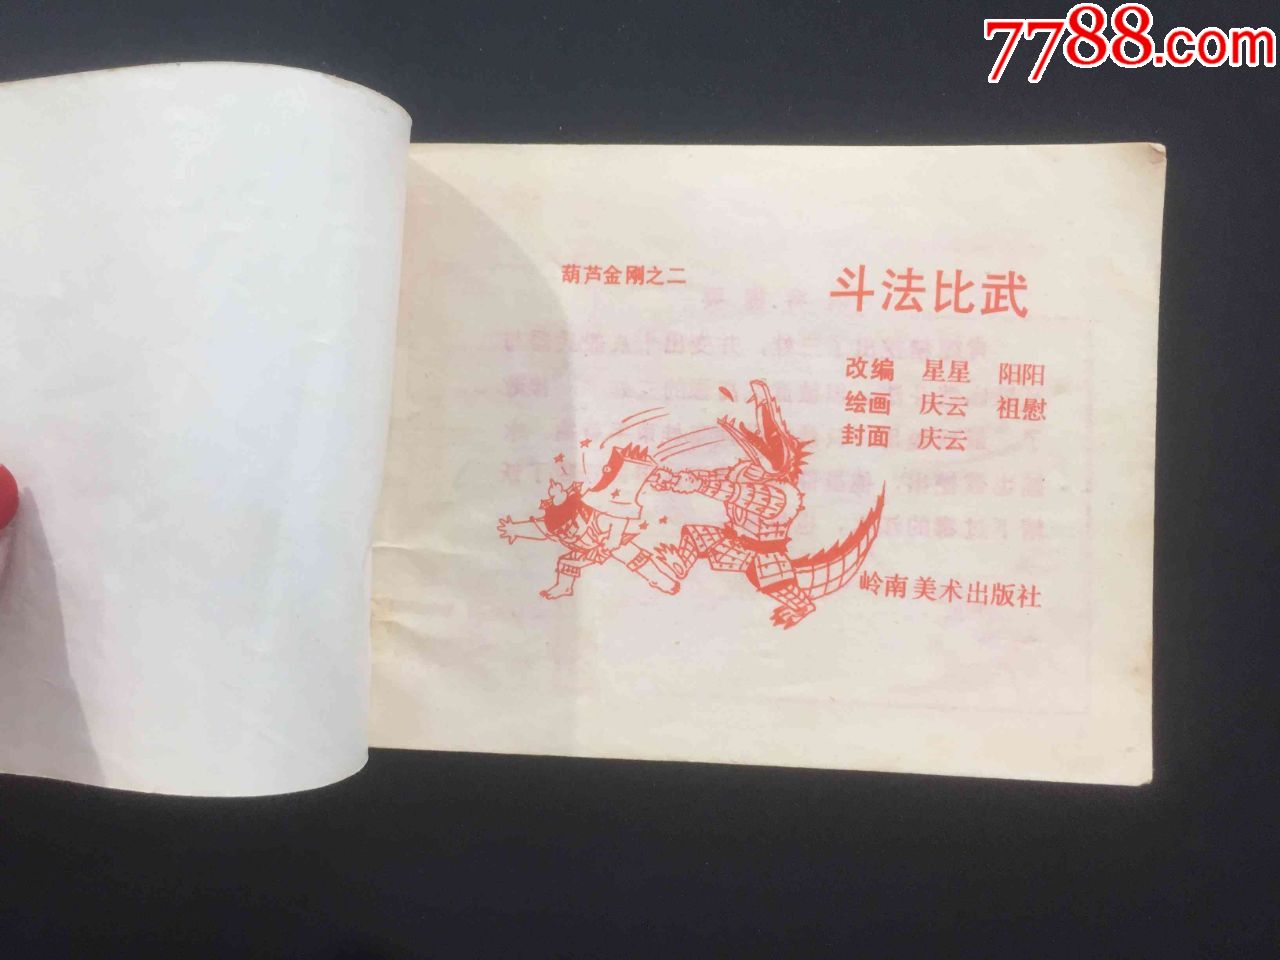 7788.com
葫芦金刚之二
斗法比武
改编 星星 阳阳
绘画 庆云 祖慰
封面 庆云
岭南美术出版社